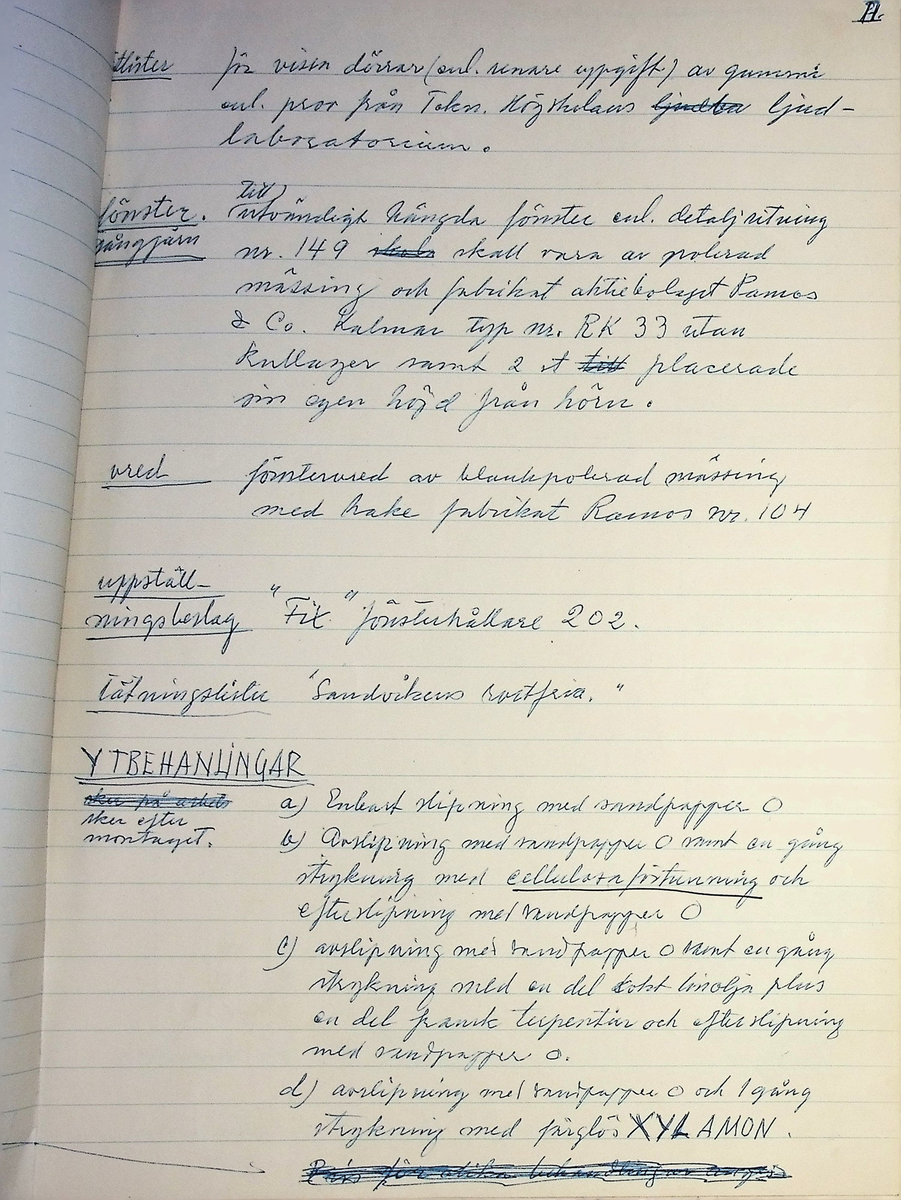 11.
tlister för vissa dörrar (enl. senare uppgift) av gummi
enl. prov från Tekn. Högskolans ljudla ljud-
laboratorium.
Till
fönster. utvändigt hängda fönster enl. detaljritning
gångjärn nr. 149 skola skall vara av polerad
mässing och fabrikat aktiebolaget Ramos
& Co. Kalmar typ nr. RK 33 utan
kullager samt 2 st till placerade
sin egen höjd från hörn.
vred fönstervred av blankpolerad mässing
med hake fabrikat Ramos nr. 104
uppställ-
ningsbeslag "Fix" fönsterhållare 202.
tätningslister "Sandvikens rostfria."
YTBEHANLINGAR
sker på arbets a) Enbart slipning med sandpapper 0
sker efter
montaget. b) Avslipning med sandpapper 0 samt en gång
strykning med cellulosaförtunning och
efterslipning med sandpapper 0
c) avslipning med sandpapper 0 samt en gång
strykning med en del kokt linolja plus
en del fransk terpentin och efterslipning
med sandpapper 0.
d) avslipning med sandpapper 0 och 1 gång
strykning med färglös XYLAMON.
Pris för olika behandlingar anges